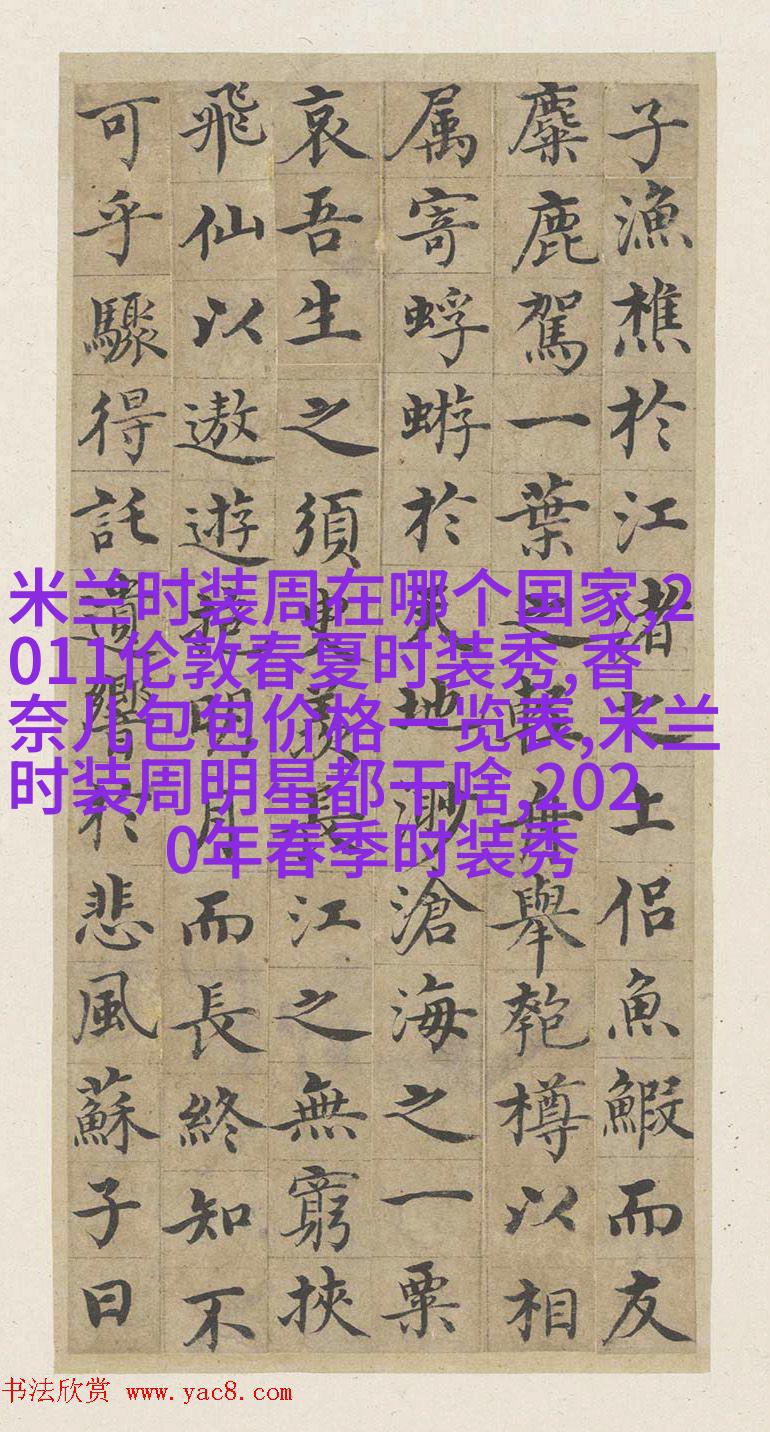 子漁樵於江渚之上侶魚鰕而友
麋鹿駕一葉之輕舟舉匏樽以相
属寄蜉蝣於天地渺滄海之一粟
哀吾生之須臾羨長江之無窮挾
飛仙以遨遊抱明月而長終知不
可乎驟得託遺響於悲風蘇子曰
米兰时装周在哪个国家,2
011伦敦春夏时装秀,香
奈儿包包价格一览表,米兰
时装周明星都干啥,202
0年春季时装秀
书法欣赏 www.yac8.com